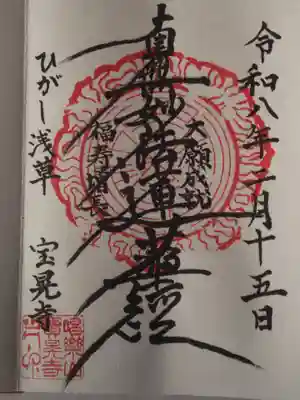 令和八年二月十五日
大願成就
南無妙法蓮華経
福寿増長
ひがし浅草
宝晃寺